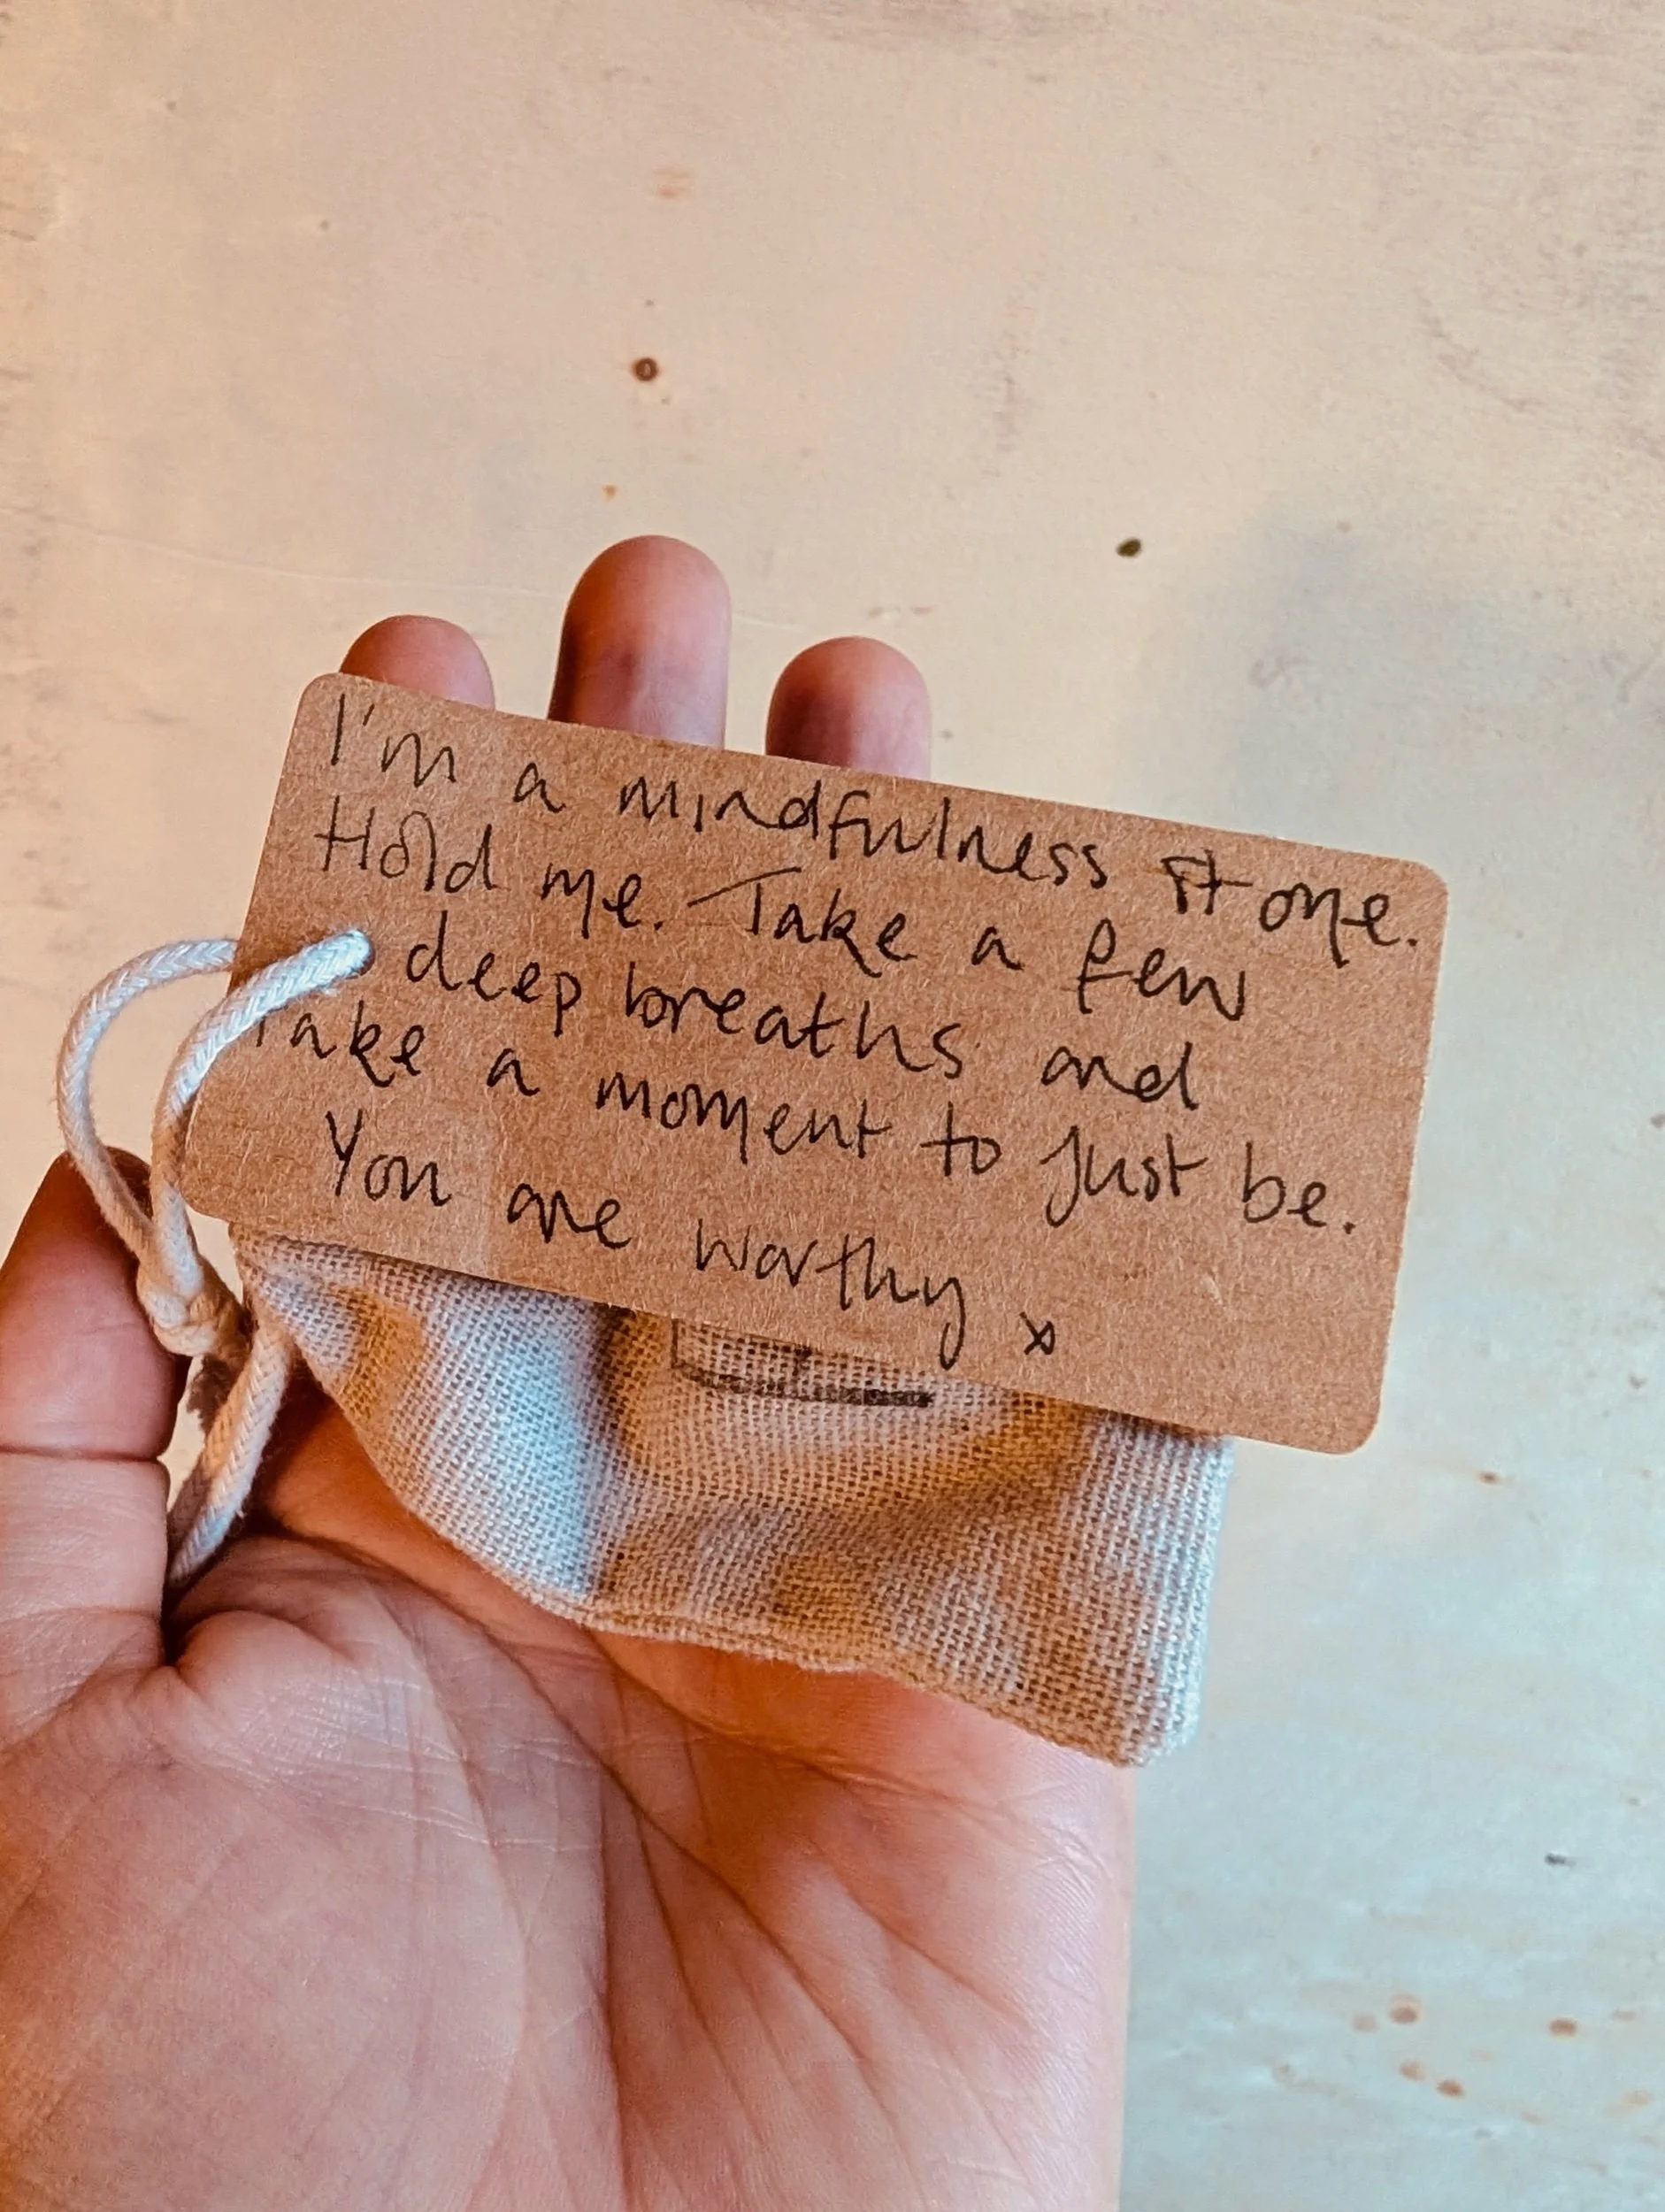 I'm a mindfulness stone.
Hold me. Take a few
deep breaths and
take a moment to just be.
You are worthy x